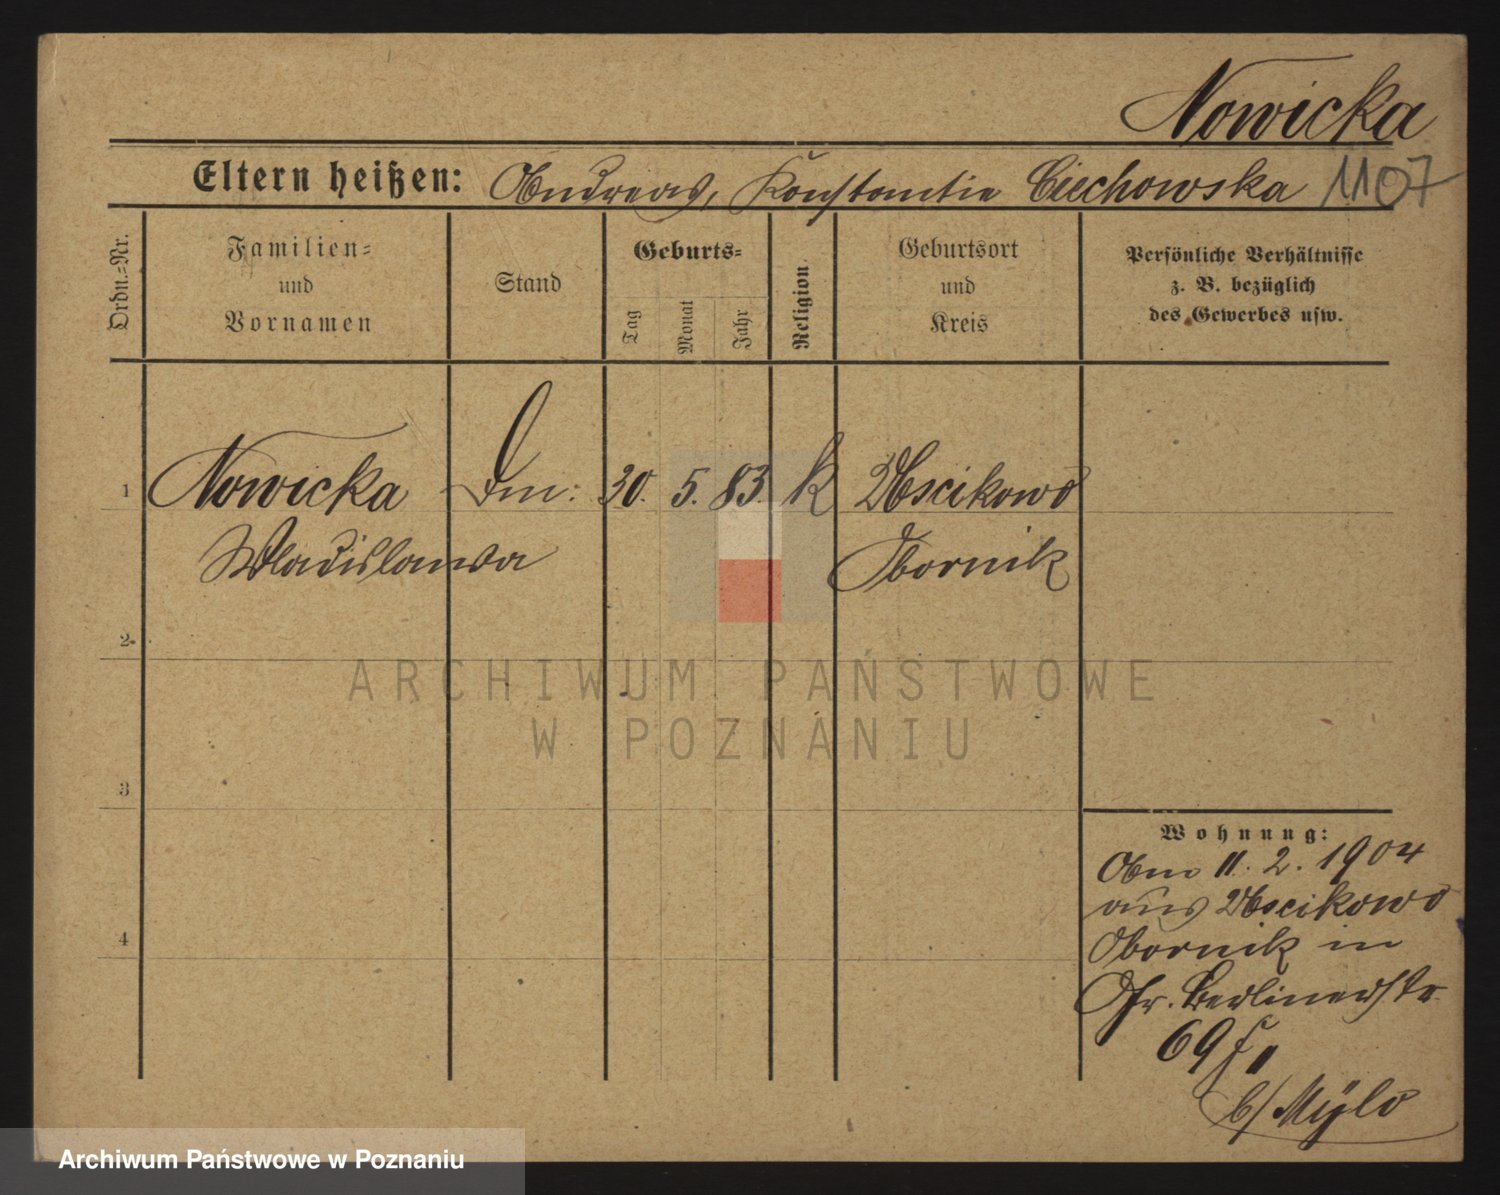 Nowicka
Eltern heißen: Andreas, Konstantie Ciechowska 1107
Ordn.=Nr.
Familien=
und
Vornamen
Stand
Geburts=
Tag
Monat
Jahr
Religion
Geburtsort
und
Kreis
Persönliche Verhältnisse
z. B. bezüglich
des Gewerbes usw.
1 Nowicka 30. 5. 83. k Uscikowo
Wladislawa Obornik
2
3
4
Wohnung:
Am 11. 2. 1904
aus Uscikowo
Obornik in
Gr. Berlinerstr
69 II
b/ Mylo
ARCHIWUM PAŃSTWOWE
W POZNANIU
Archiwum Państwowe w Poznaniu